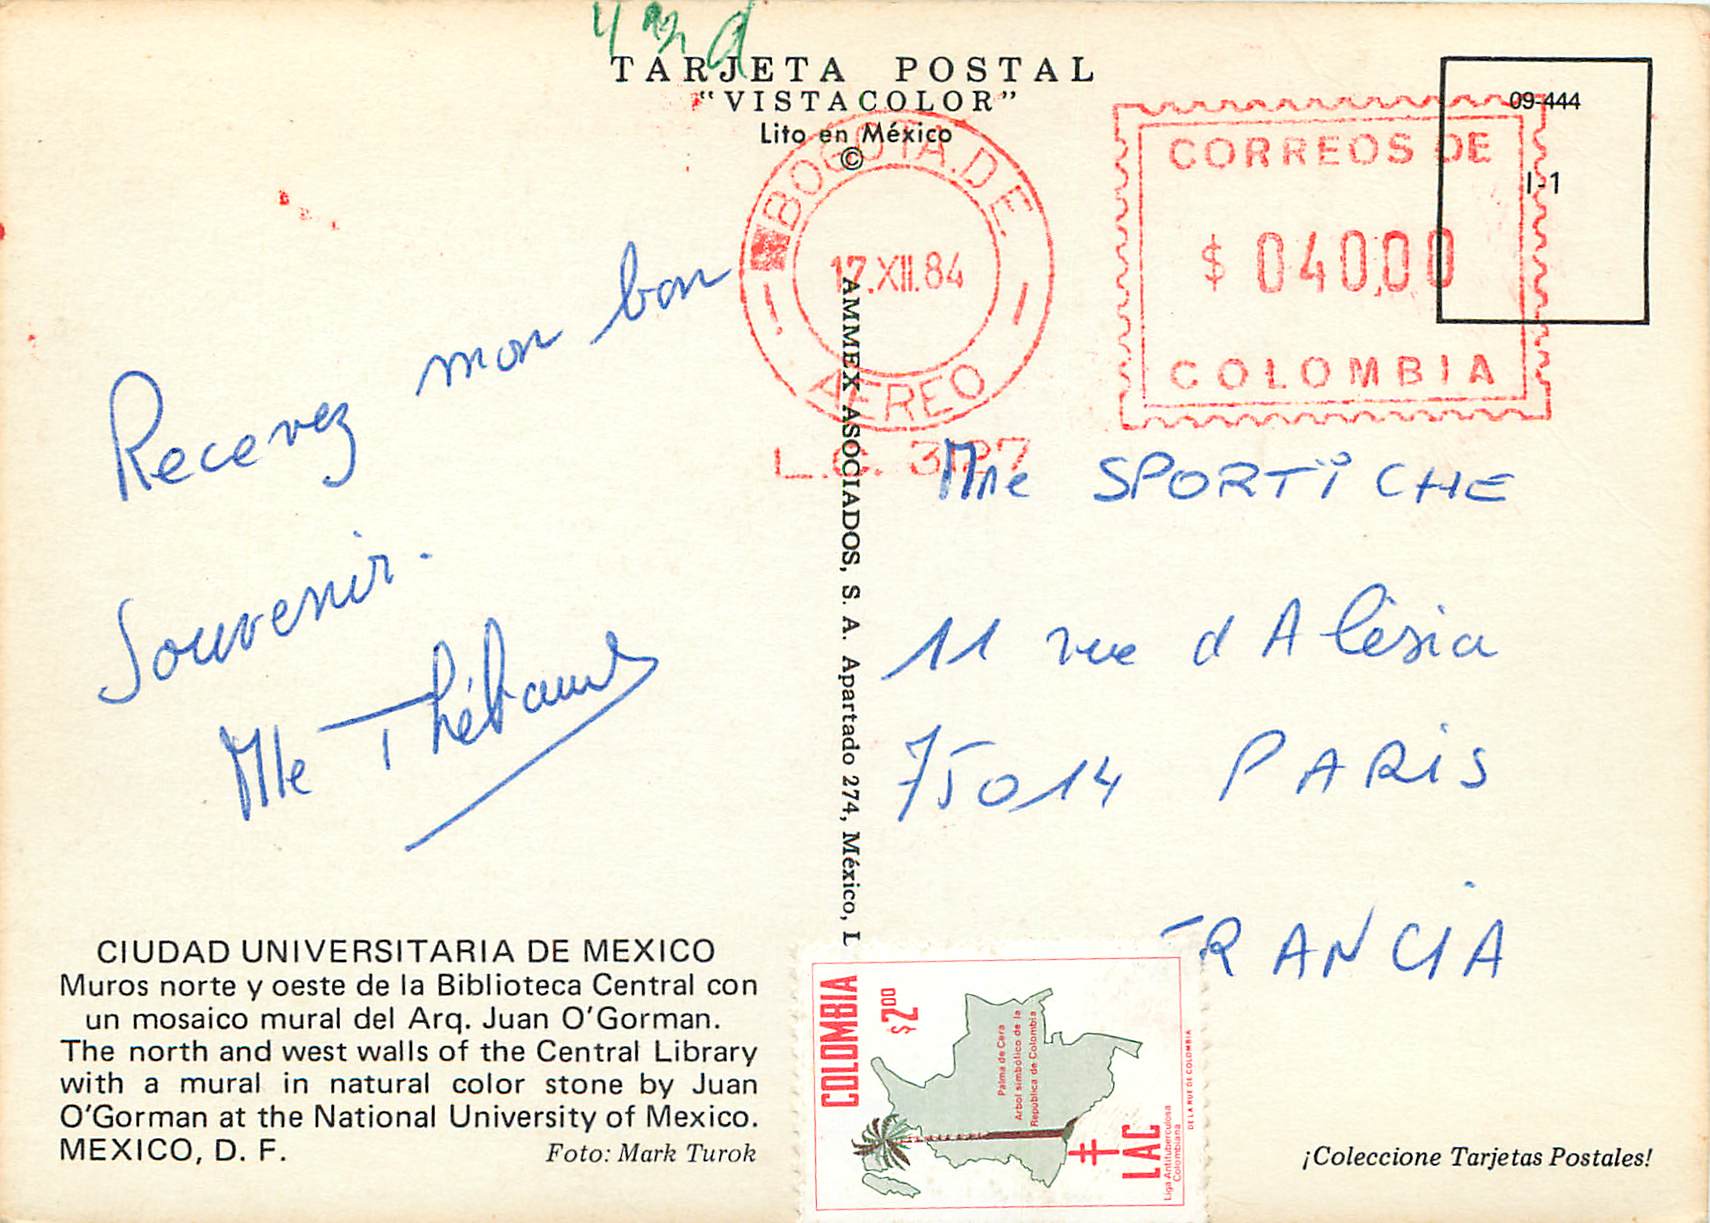 TARJETA POSTAL
"VISTACOLOR"
Lito en México
©
09-444
I-1
BOGOTA.D.E.
17.XII.84
AEREO
L.C. 3127
CORREOS DE
$ 040,00
COLOMBIA
Recevez mon bon
Souvenir.
Mle Thébaud
AMMEX ASOCIADOS, S. A. Apartado 274, México, 1
Mne SPORTICHE
11 rue d Alésia
75014 PARIS
FRANCIA
CIUDAD UNIVERSITARIA DE MEXICO
Muros norte y oeste de la Biblioteca Central con
un mosaico mural del Arq. Juan O'Gorman.
The north and west walls of the Central Library
with a mural in natural color stone by Juan
O'Gorman at the National University of Mexico.
MEXICO, D. F.
Foto: Mark Turok
COLOMBIA
$2.00
Palma de Cera
Arbol simbólico de la
República de Colombia
LAC
Liga Antituberculosa
Colombiana
DE LA RUE DE COLOMBIA
¡Coleccione Tarjetas Postales!